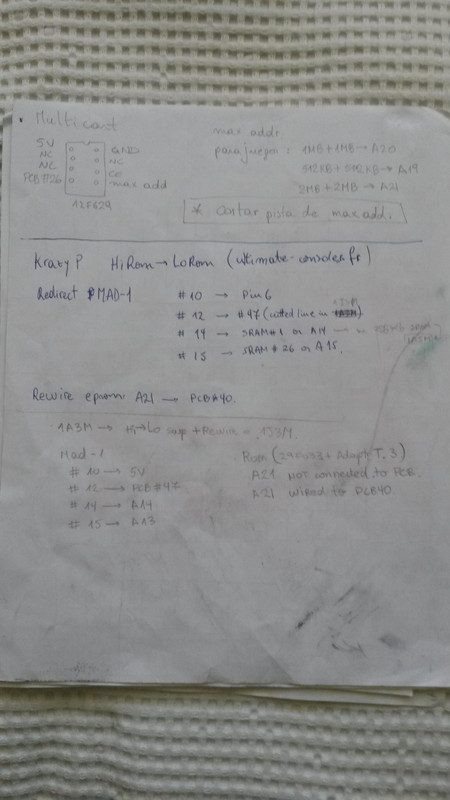 • Multicart
5V GND
NC NC
NC CE
PCB#26 max add
12F629
max addr
para juegos: 1MB+1MB → A20
512KB+512KB → A19
2MB+2MB → A21
* Cortar pista de max add.
Krazy P HiRom → LoRom (ultimate-consoles.fr)
Redirect MAD-1 #10 → Pin 6
#12 → #47 (cutted line in
#14 → SRAM#1 or A14
#15 → SRAM#26 or A15.
Rewire eprom A21 → PCB#40.
1A3M → Hi→Lo swap + Rewire =
Mad-1
#10 → 5V
#12 → PCB#47
#14 → A14
#15 → A13
Rom (29F033 + Adapt T.3)
A21 not connected to PCB
A21 wired to PCB40